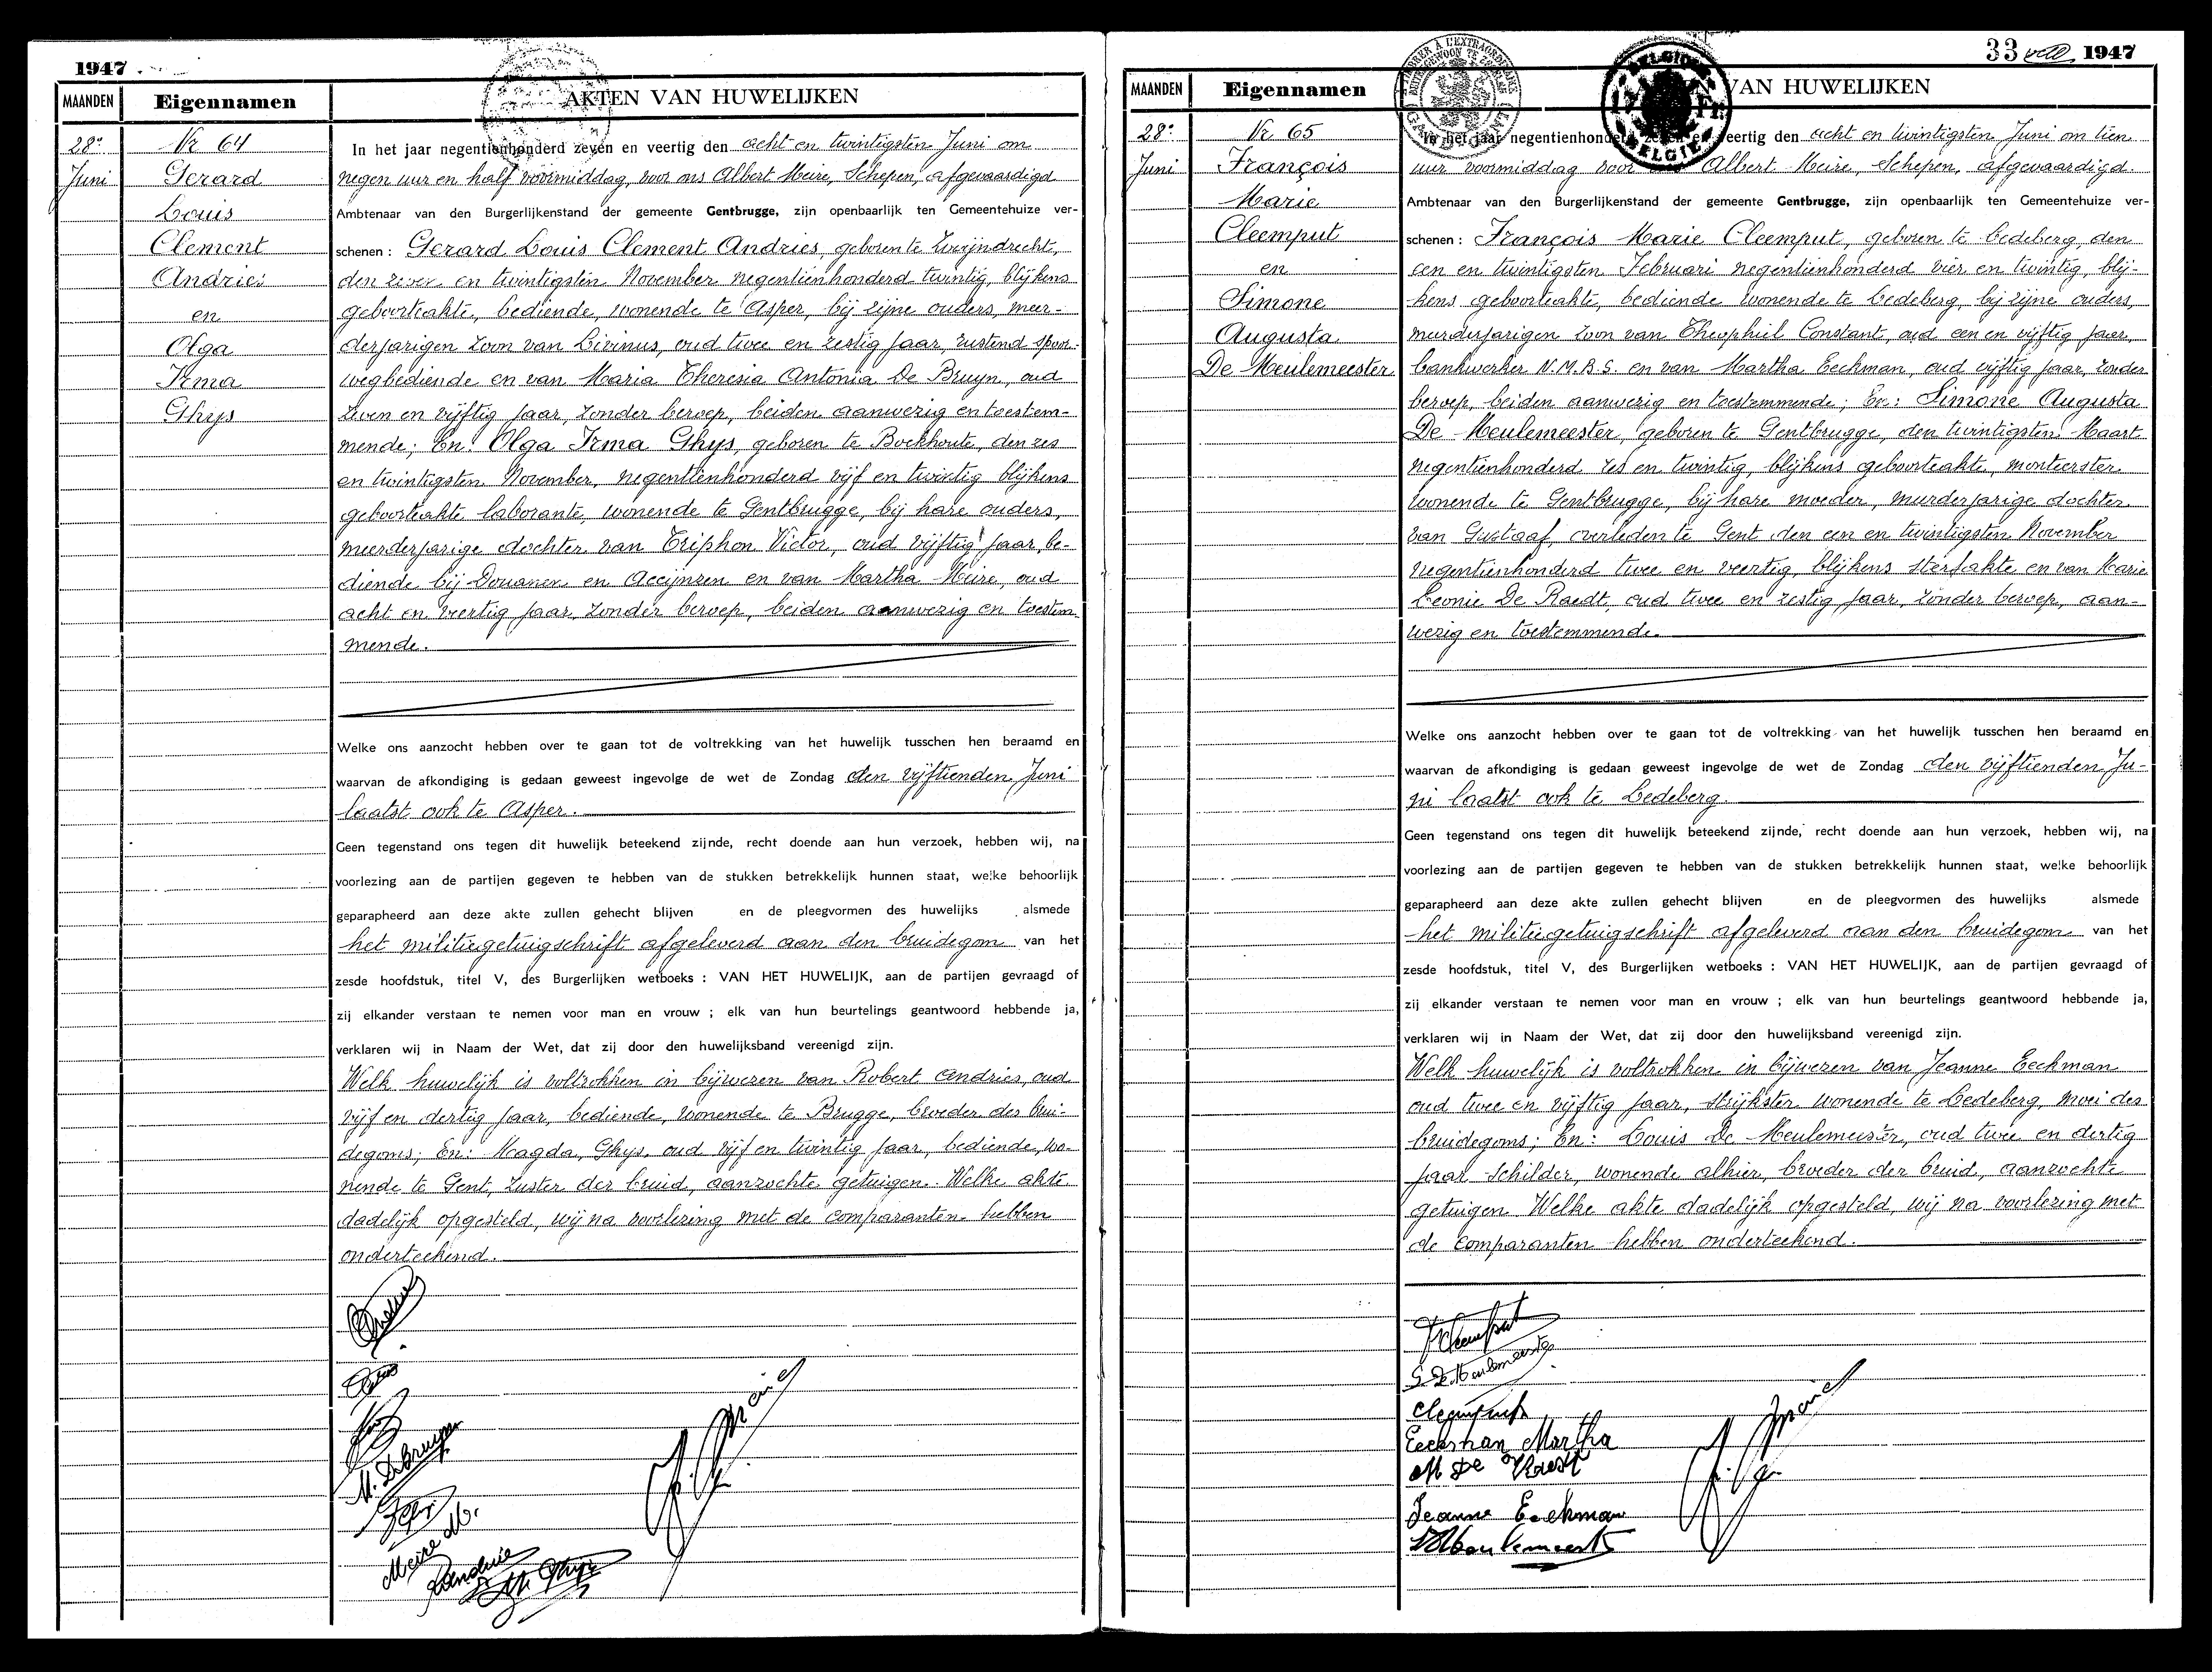 1947
MAANDEN
Eigennamen
AKTEN VAN HUWELIJKEN
28n
Juni
Nr 64
Gerard
Louis
Clement
Andries
en
Olga
Irma
Ghys
In het jaar negentienhonderd zeven en veertig den acht en twintigsten Juni om
negen uur en half voormiddag, voor ons Albert Meire, Schepen, afgevaardigd
Ambtenaar van den Burgerlijkenstand der gemeente Gentbrugge, zijn openbaarlijk ten Gemeentehuize ver-
schenen : Gerard Louis Clement Andries, geboren te Zwijndrecht,
den zeven en twintigsten November negentienhonderd twintig, blijkens
geboorteakte, bediende, wonende te Asper, bij zijne ouders, meer-
derjarigen zoon van Livinus, oud twee en zestig jaar, rustend spoor-
wegbediende en van Maria Theresia Antonia De Bruyn, oud
zeven en vijftig jaar, zonder beroep, beiden aanwezig en toestem-
mende; En: Olga Irma Ghys, geboren te Boekhoute, den zes
en twintigsten November, negentienhonderd vijf en twintig blijkens
geboorteakte laborante, wonende te Gentbrugge, bij hare ouders,
meerderjarige dochter van Triphon Victor, oud vijftig jaar, be-
diende bij Douanen en Accijnzen en van Martha Meire, oud
acht en veertig jaar, zonder beroep, beiden aanwezig en toestem-
mende.
Welke ons aanzocht hebben over te gaan tot de voltrekking van het huwelijk tusschen hen beraamd en
waarvan de afkondiging is gedaan geweest ingevolge de wet de Zondag den vijftienden Juni
laatst ook te Asper.
Geen tegenstand ons tegen dit huwelijk beteekend zijnde, recht doende aan hun verzoek, hebben wij, na
voorlezing aan de partijen gegeven te hebben van de stukken betrekkelijk hunnen staat, welke behoorlijk
geparapheerd aan deze akte zullen gehecht blijven en de pleegvormen des huwelijks alsmede
het militiegetuigschrift afgeleverd aan den bruidegom van het
zesde hoofdstuk, titel V, des Burgerlijken wetboeks : VAN HET HUWELIJK, aan de partijen gevraagd of
zij elkander verstaan te nemen voor man en vrouw ; elk van hun beurtelings geantwoord hebbende ja,
verklaren wij in Naam der Wet, dat zij door den huwelijksband vereenigd zijn.
Welk huwelijk is voltrokken in bijwezen van Robert Andries, oud
vijf en dertig jaar, bediende, wonende te Brugge, broeder des brui-
degoms; En: Magda, Ghys, oud vijf en twintig jaar, bediende, wo-
nende te Gent, zuster der bruid, aanzochte getuigen. Welke akte
dadelijk opgesteld, wij na voorlezing met de comparanten hebben
onderteekend.
M. De Bruyn
Meire M.
33 1947
MAANDEN
Eigennamen
VAN HUWELIJKEN
28n
Juni
Nr 65
François
Marie
Cleemput
en
Simone
Augusta
De Meulemeester
In het jaar negentienhonderd veertig den acht en twintigsten Juni om tien
uur voormiddag voor Albert Meire, Schepen, afgevaardigd
Ambtenaar van den Burgerlijkenstand der gemeente Gentbrugge, zijn openbaarlijk ten Gemeentehuize ver-
schenen : François Marie Cleemput, geboren te Ledeberg, den
een en twintigsten Februari negentienhonderd vier en twintig, blij-
kens geboorteakte, bediende wonende te Ledeberg, bij zijne ouders,
meerderjarigen zoon van Theophiel Constant, oud een en vijftig jaar,
bankwerker N.M.B.S. en van Martha Eeckman, oud vijftig jaar, zonder
beroep, beiden aanwezig en toestemmende; En: Simone Augusta
De Meulemeester, geboren te Gentbrugge, den twintigsten Maart
negentienhonderd zes en twintig, blijkens geboorteakte, monteerster
wonende te Gentbrugge, bij hare moeder, meerderjarige dochter
van Gustaaf, overleden te Gent den een en twintigsten November
negentienhonderd twee en veertig, blijkens sterfakte en van Marie
Leonie De Raedt, oud twee en zestig jaar, zonder beroep, aan-
wezig en toestemmende.
Welke ons aanzocht hebben over te gaan tot de voltrekking van het huwelijk tusschen hen beraamd en
waarvan de afkondiging is gedaan geweest ingevolge de wet de Zondag den vijftienden Ju-
ni laatst ook te Ledeberg.
Geen tegenstand ons tegen dit huwelijk beteekend zijnde, recht doende aan hun verzoek, hebben wij, na
voorlezing aan de partijen gegeven te hebben van de stukken betrekkelijk hunnen staat, welke behoorlijk
geparapheerd aan deze akte zullen gehecht blijven en de pleegvormen des huwelijks alsmede
het militiegetuigschrift afgeleverd aan den bruidegom van het
zesde hoofdstuk, titel V, des Burgerlijken wetboeks : VAN HET HUWELIJK, aan de partijen gevraagd of
zij elkander verstaan te nemen voor man en vrouw ; elk van hun beurtelings geantwoord hebbende ja,
verklaren wij in Naam der Wet, dat zij door den huwelijksband vereenigd zijn.
Welk huwelijk is voltrokken in bijwezen van Jeanne Eeckman
oud twee en vijftig jaar, strijkster wonende te Ledeberg, moei des
bruidegoms; En: Louis De Meulemeester, oud twee en dertig
jaar Schilder, wonende alhier, broeder der bruid, aanzochte
getuigen. Welke akte dadelijk opgesteld, wij na voorlezing met
de comparanten hebben onderteekend.
F Cleemput
S. De Meulemeester
Cleemput
Eeckman Martha
M De Raedt
Jeanne Eeckman